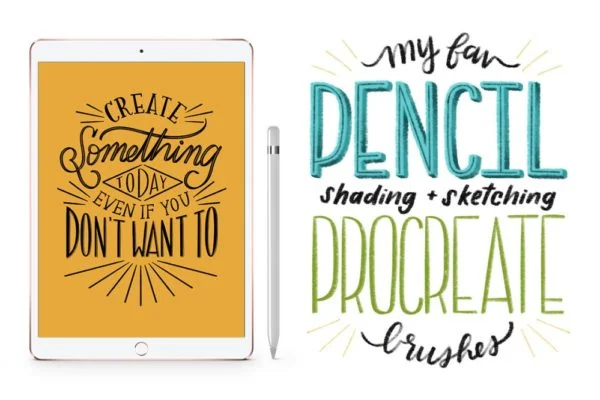 CREATE
Something
TODAY
EVEN IF YOU
DON'T WANT TO
my fav
PENCIL
shading + sketching
PROCREATE
brushes